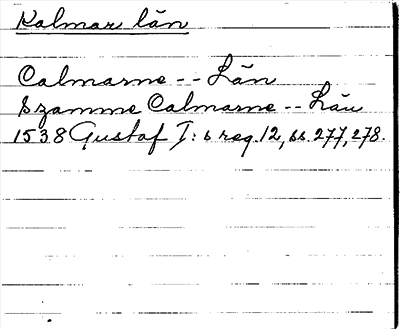 Kalmar län
Calmarne -- Län
Szamme Calmarne -- Län
1538 Gustaf I: s reg. 12, ss. 277, 278.